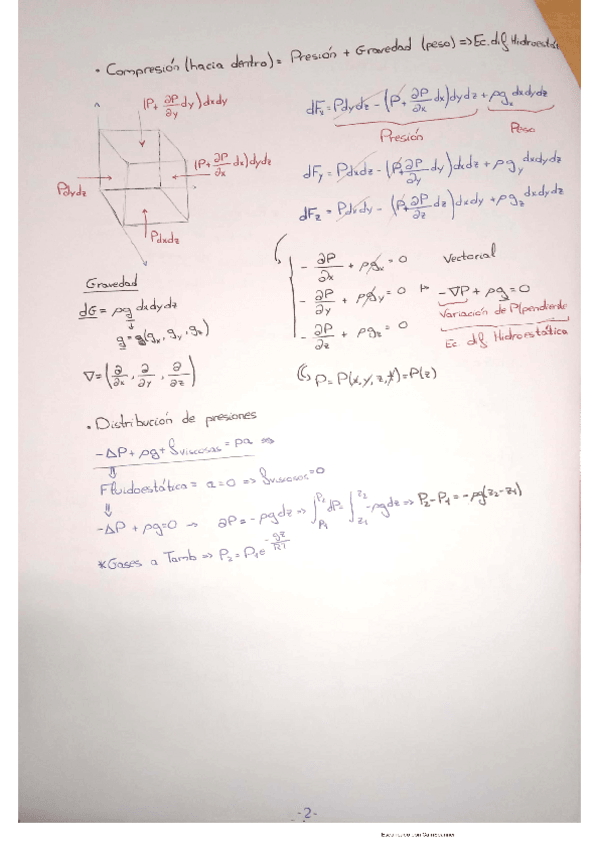 • Compresión (hacia dentro) = Presión + Gravedad (peso) => Ec. dif Hidroestát
(P + ∂P/∂y dy) dxdy
(P + ∂P/∂x dx) dydz
Pdydz
Pdxdz
dFx = Pdydz - (P + ∂P/∂x dx) dydz + ρgx dxdydz
Presión
Peso
dFy = Pdxdz - (P + ∂P/∂y dy) dxdz + ρgy dxdydz
dFz = Pdxdy - (P + ∂P/∂z dz) dxdy + ρgz dxdydz
Gravedad
dG = ρg dxdydz
g = g(gx, gy, gz)
∇ = (∂/∂x, ∂/∂y, ∂/∂z)
- ∂P/∂x + ρgx = 0
- ∂P/∂y + ρgy = 0
- ∂P/∂z + ρgz = 0
Vectorial
-∇P + ρg = 0
Variación de P (pendiente
Ec dif Hidroestática
P = P(x, y, z, t) = P(z)
• Distribución de presiones
-ΔP + ρg + fviscosas = ρa =>
Fluidoestática = a = 0 => fviscosos = 0
-ΔP + ρg = 0 → ∂P = -ρgdz → ∫P1 P2 dP = ∫z1 z2 -ρgdz => P2 - P1 = -ρg(z2 - z1)
*Gases a Tamb => P2 = P1 e^(-gz/RT)
-2-